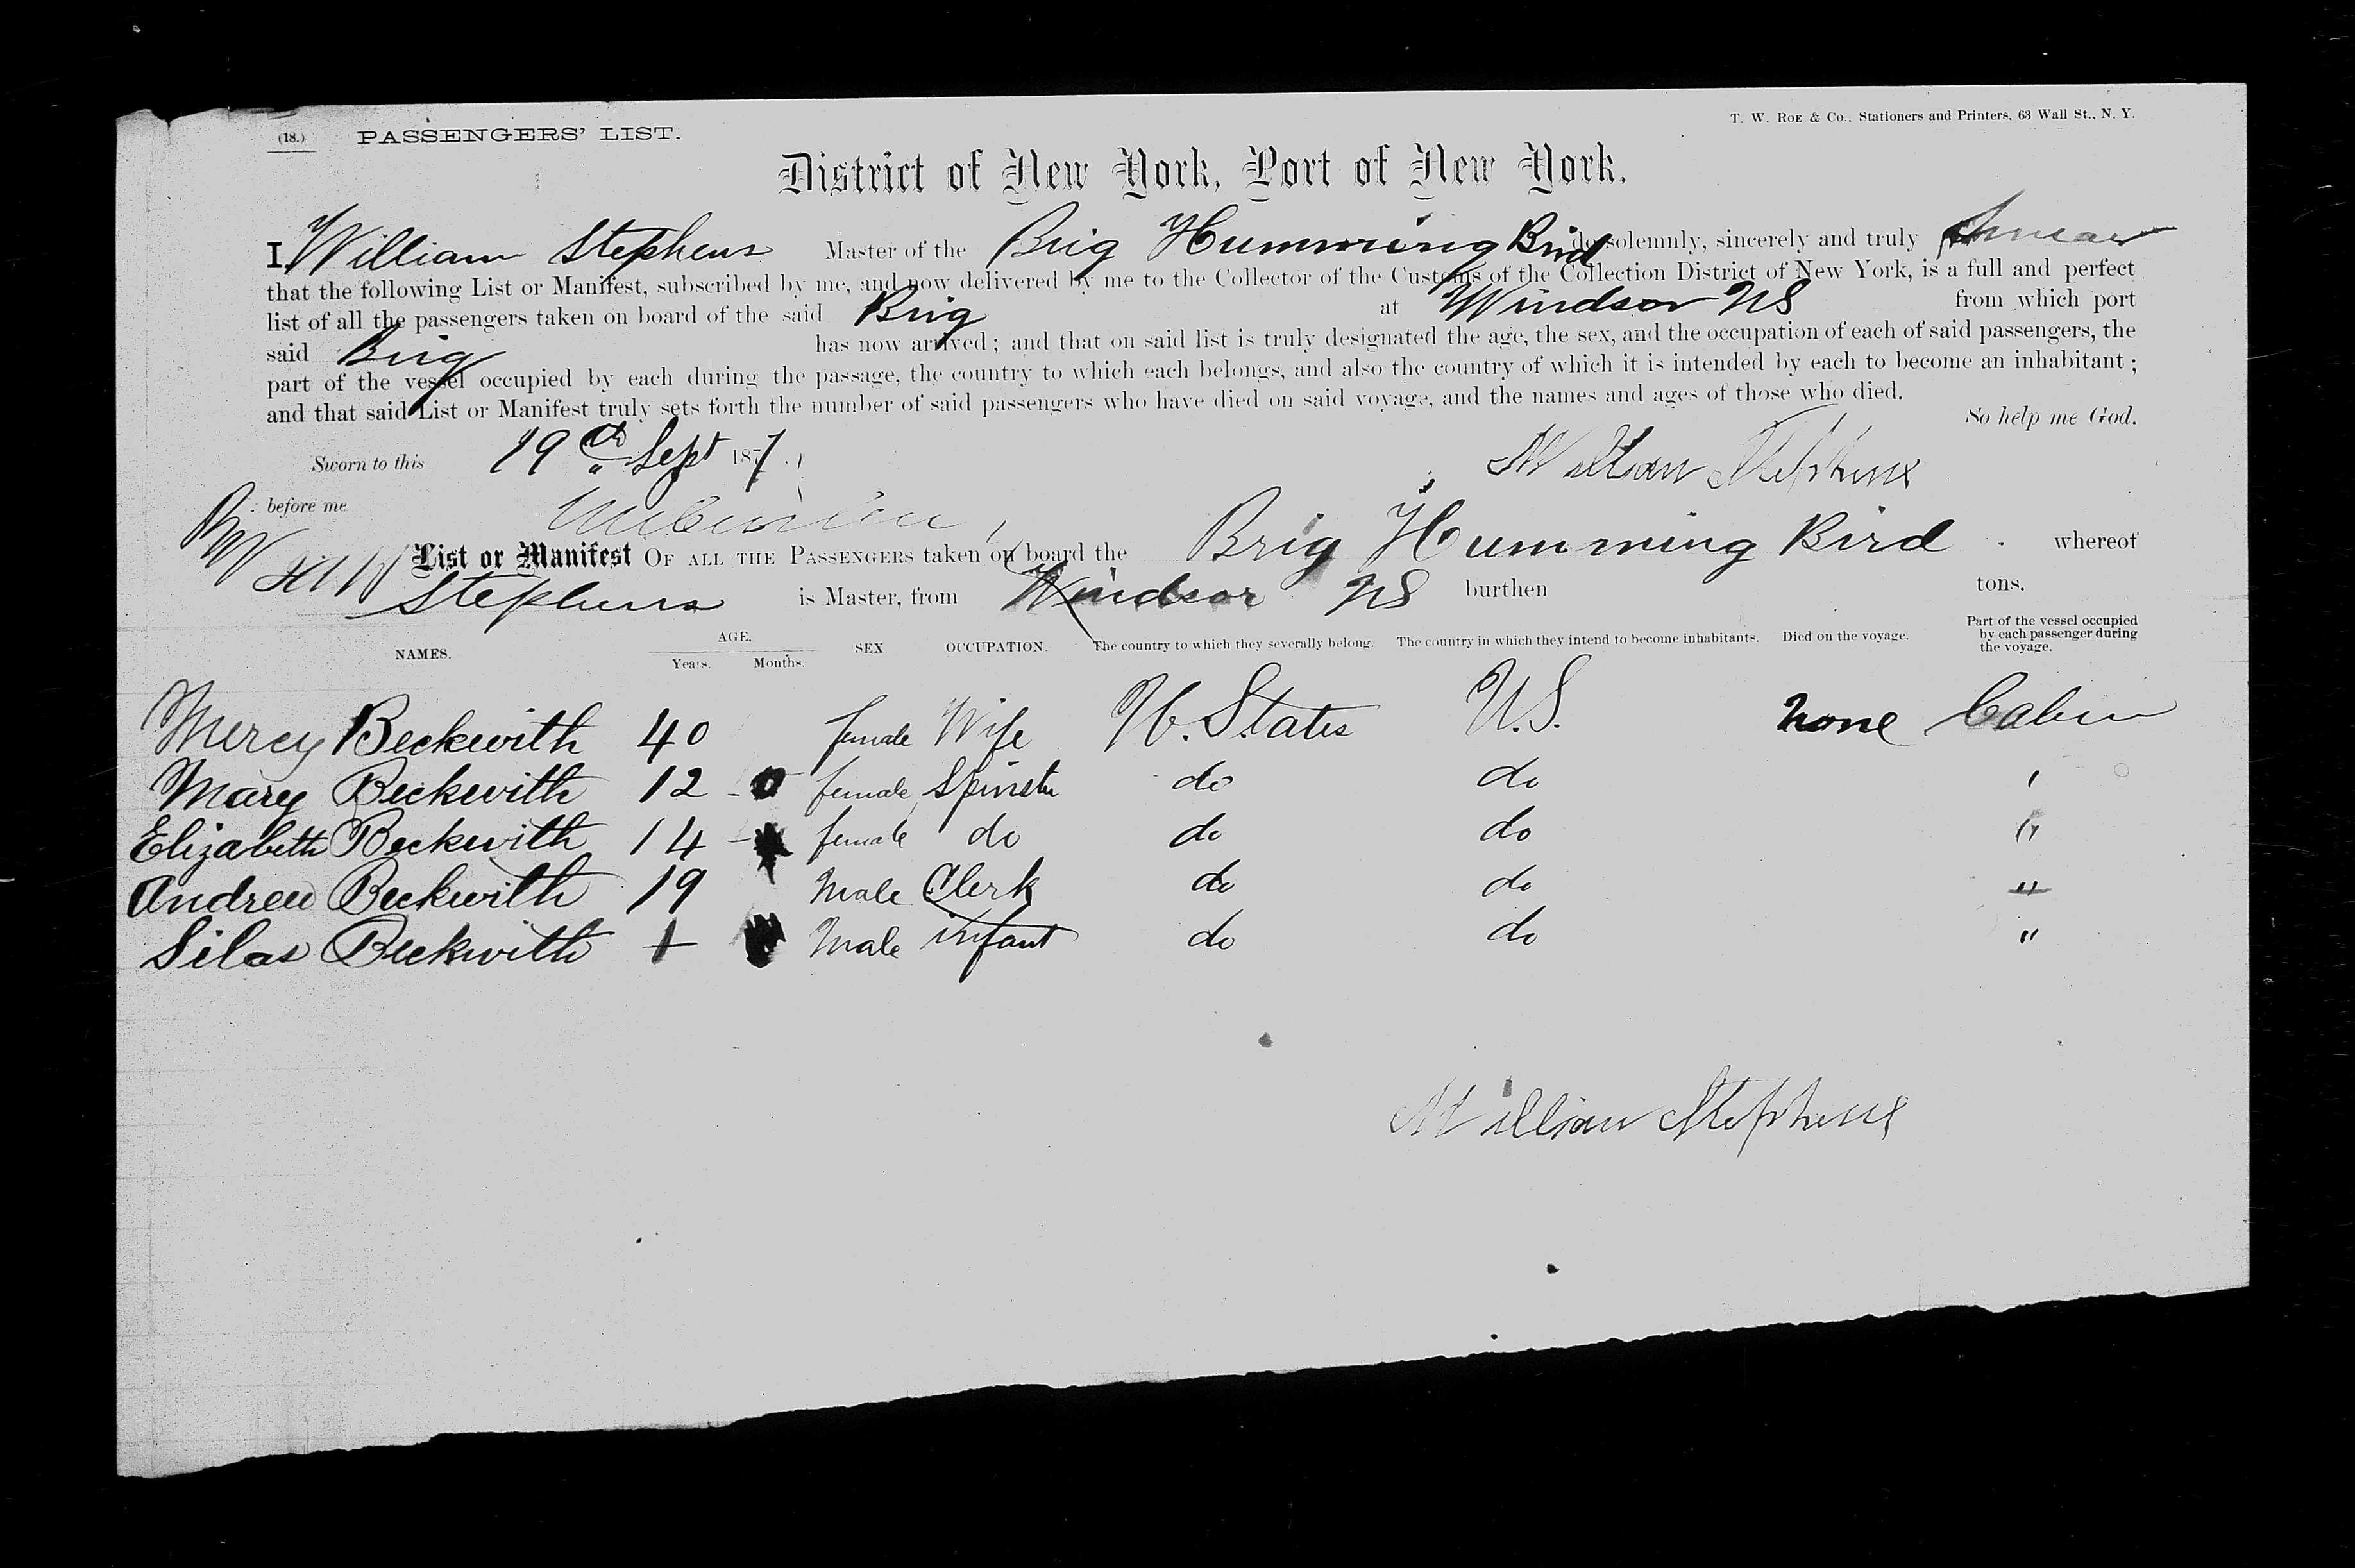 (18.) PASSENGERS' LIST.
T. W. Roe & Co., Stationers and Printers, 63 Wall St., N. Y.
District of New York, Port of New York.
I, William Stephens Master of the Brig Humming Bird do solemnly, sincerely and truly swear
that the following List or Manifest, subscribed by me, and now delivered by me to the Collector of the Customs of the Collection District of New York, is a full and perfect
list of all the passengers taken on board of the said Brig at Windsor NS from which port
said Brig has now arrived; and that on said list is truly designated the age, the sex, and the occupation of each of said passengers, the
part of the vessel occupied by each during the passage, the country to which each belongs, and also the country of which it is intended by each to become an inhabitant;
and that said List or Manifest truly sets forth the number of said passengers who have died on said voyage, and the names and ages of those who died.
So help me God.
Sworn to this 19th Sept 1871.
William Stephens
before me
List or Manifest OF ALL THE PASSENGERS taken on board the Brig Humming Bird whereof
Stephens is Master, from Windsor NS burthen tons.
NAMES. AGE. Years. Months. SEX OCCUPATION. The country to which they severally belong. The country in which they intend to become inhabitants. Died on the voyage. Part of the vessel occupied by each passenger during the voyage.
Mercy Beckwith 40 female Wife U. States U.S. None Cabin
Mary Beckwith 12 - 0 female Spinster do do "
Elizabeth Beckwith 14 - female do do do "
Andrew Beckwith 19 Male Clerk do do "
Silas Beckwith 1 Male infant do do "
William Stephens